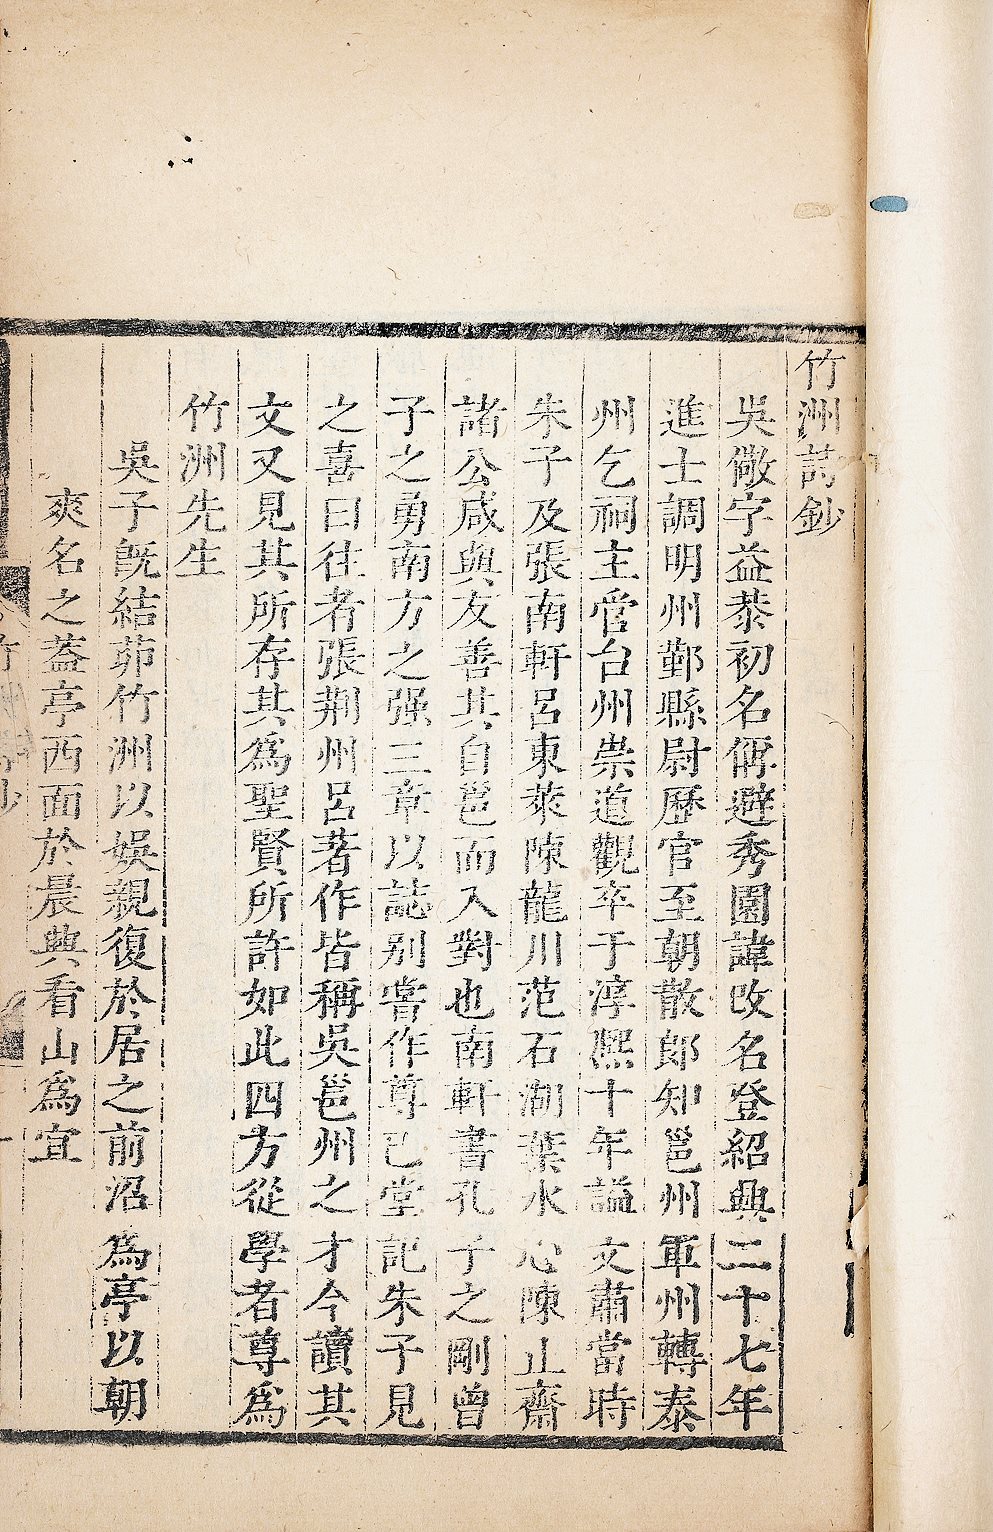 竹洲詩鈔
吳儆字益恭初名偁避秀園諱改名登紹興二十七年
進士調明州鄞縣尉歷官至朝散郎知邕州軍州轉泰
州乞祠主管台州崇道觀卒于淳熙十年謚文肅當時
朱子及張南軒呂東萊陳龍川范石湖葉水心陳止齋
諸公咸與友善其自邕而入對也南軒書孔子之剛曾
子之勇南方之强三章以誌别嘗作尊己堂記朱子見
之喜曰往者張荆州呂著作皆稱吳邕州之才今讀其
文又見其所存其爲聖賢所許如此四方從學者尊爲
竹洲先生
吳子旣結茆竹洲以娛親復於居之前沼爲亭以朝
爽名之葢亭西面於晨興看山爲宜